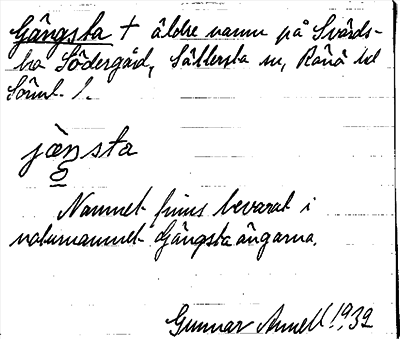 Gängsta † äldre namn på Svärds-
bro Södergård, Sättersta sn, Rönö hd
Sörml. l.
jæŋsta
Namnet finns bevarat i
naturnamnet Gängstaängarna.
Gunnar Annell 1932